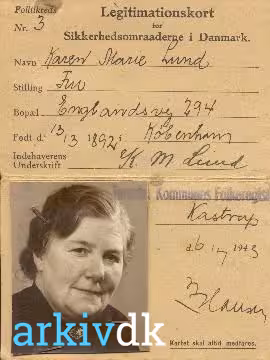 Politikreds
Nr. 3
Legitimationskort
for
Sikkerhedsomraaderne i Danmark.
Navn Karen Marie Lund
Stilling Fru
Bopæl Englandsvej 294
Født d. 13/3 1892 i København
Indehaverens
Underskrift K M Lund
Kommunes Folkeregister
Kastrup
1943
Hansen
Kortet skal altid medføres.
arkivdk